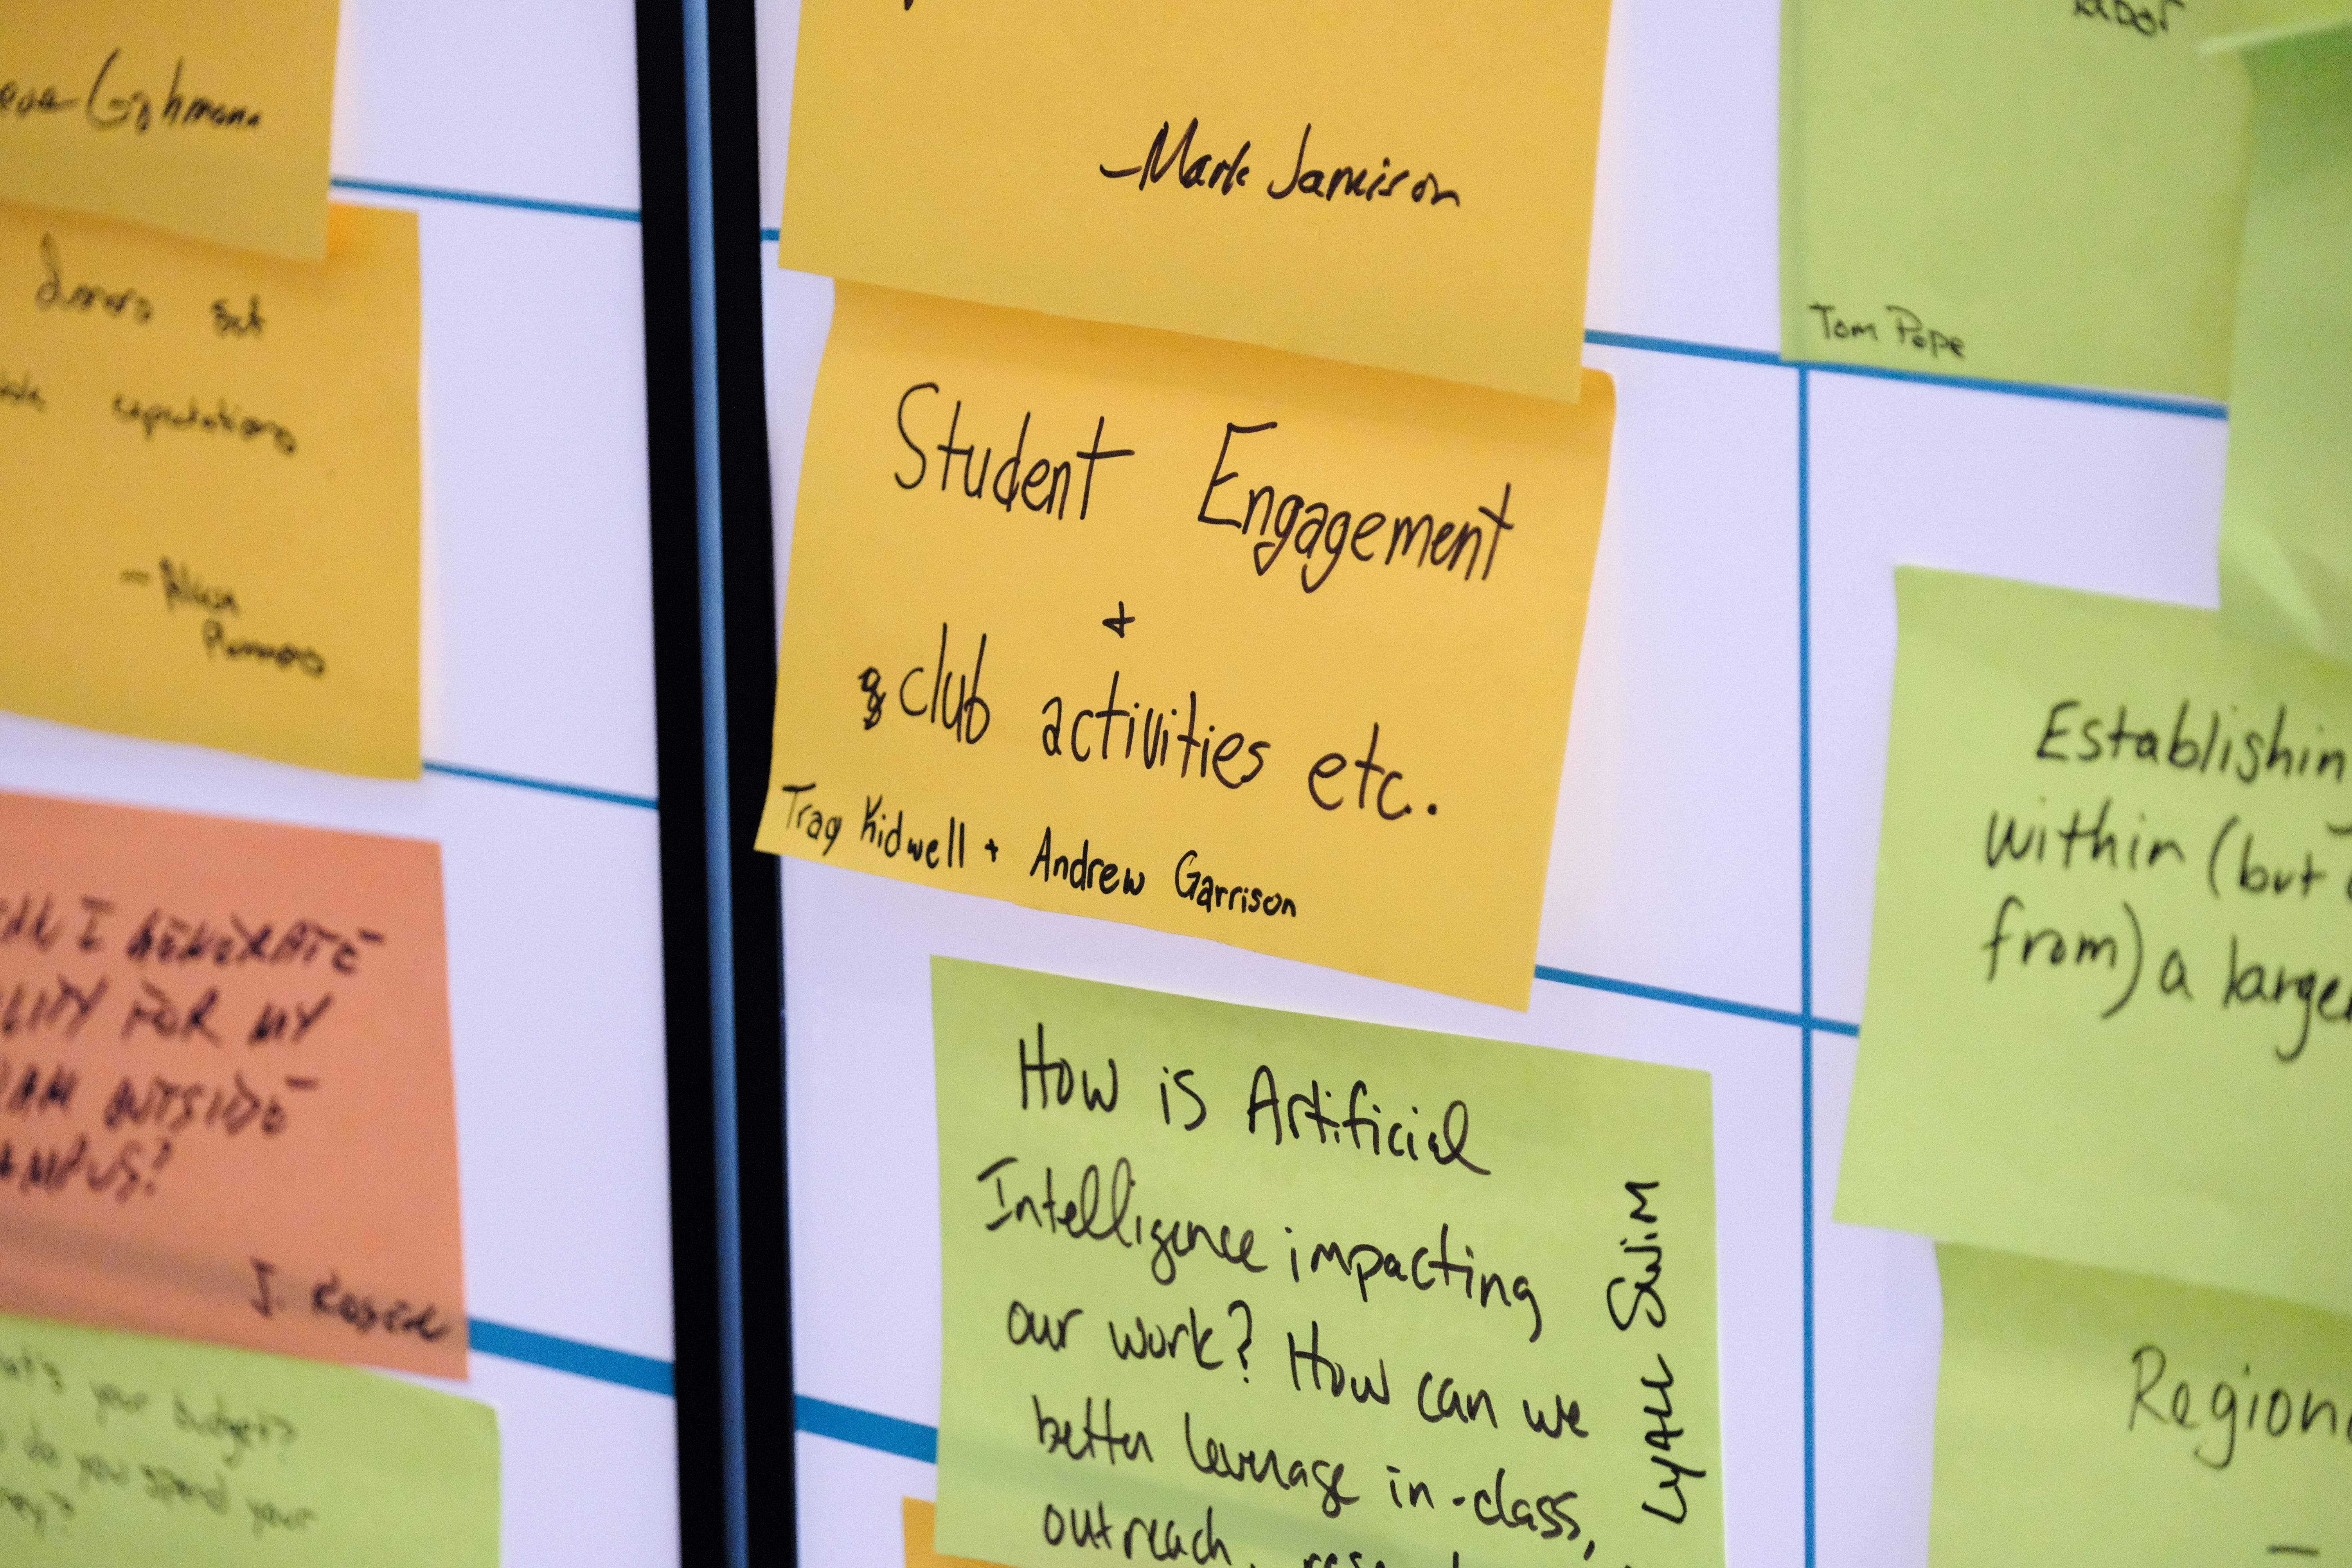 Gohmann
donors set
expectations
I GENERATE
FOR MY
OUTSIDE
J.
your budget?
do you spend your
-Mark Jamison
Student Engagement
+
club activities etc.
Tracy Kidwell + Andrew Garrison
How is Artificial
Intelligence impacting
our work? How can we
better leverage in-class,
outreach,
LYALL SWIM
Tom Pope
Establishin
within (but
from) a large
Region